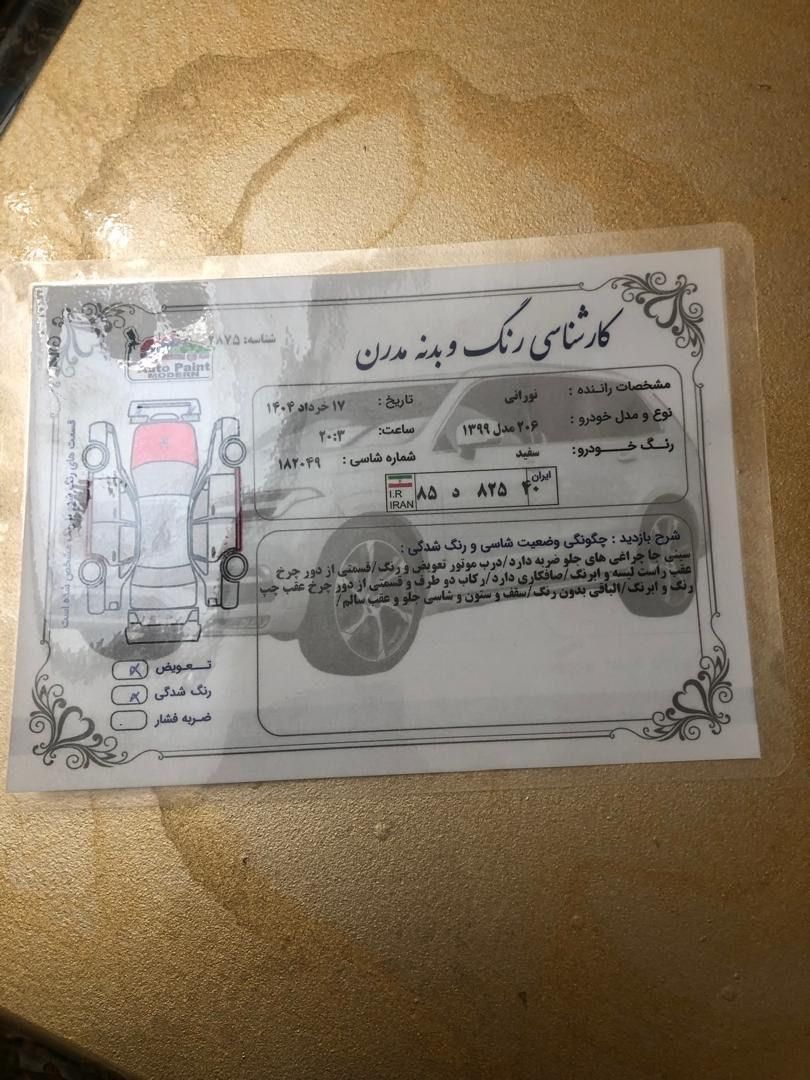 کارشناسی رنگ و بدنه مدرن
شناسه: ۲۸۷۵
Auto Paint
MODERN
مشخصات راننده : نورانی تاریخ : ۱۷ خرداد ۱۴۰۴
نوع و مدل خودرو : ۲۰۶ مدل ۱۳۹۹ ساعت: ۲۰:۳
رنگ خــودرو: سفید شماره شاسی : ۱۸۲۰۴۹
I.R
IRAN
۸۵ د ۸۲۵
ایران
۴۰
شرح بازدید : چگونگی وضعیت شاسی و رنگ شدگی :
سینی جا چراغی های جلو ضربه دارد/درب موتور تعویض و رنگ/قسمتی از دور چرخ
عقب راست لیسه و ابرنگ/صافکاری دارد/رکاب دو طرف و قسمتی از دور چرخ عقب چپ
رنگ و ابرنگ/الباقی بدون رنگ/سقف و ستون و شاسی جلو و عقب سالم/
قسمت های رنگ مشخص شده است
تــعویض
رنگ شدگی
ضربه فشار